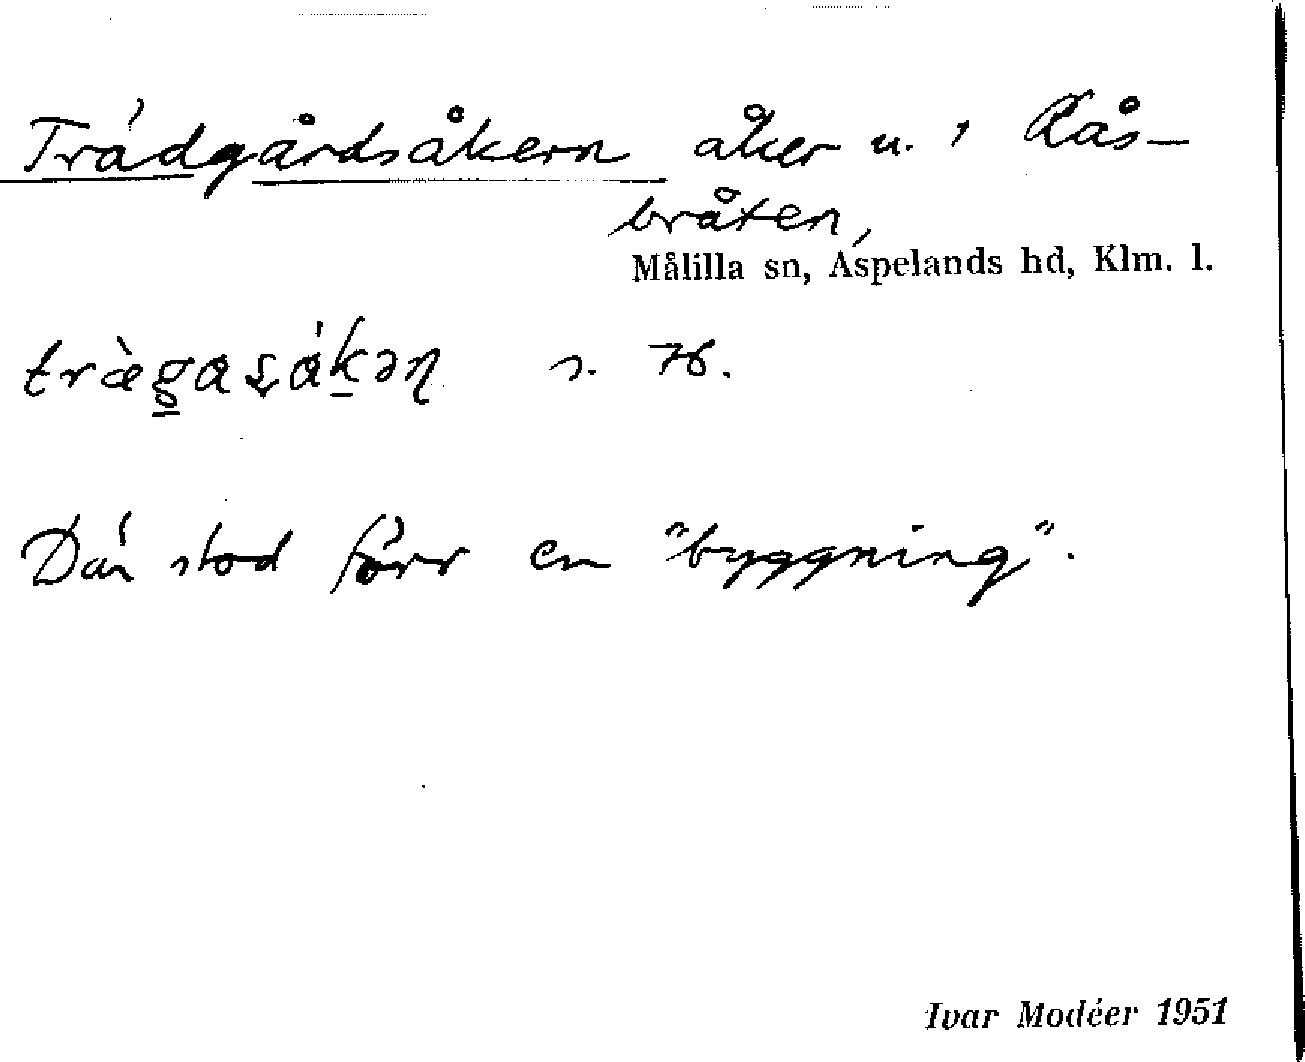 Trädgårdsåkern åker u. 1 Rås-
bråten,
Målilla sn, Aspelands hd, Klm. l.
s. 76.
Där stod förr en "byggning".
Ivar Modéer 1951